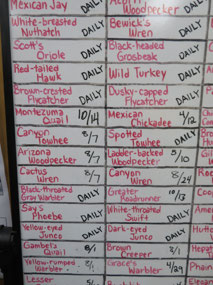 Mexican Jay DAILY
Acorn Woodpecker DAILY
White-breasted Nuthatch DAILY
Bewick's Wren DAILY
Scott's Oriole DAILY
Black-headed Grosbeak DAILY
Red-tailed Hawk DAILY
Wild Turkey DAILY
Brown-crested Flycatcher DAILY
Dusky-capped Flycatcher DAILY
Montezuma Quail 10/14
Mexican Chickadee 4/12
Canyon Towhee 8/7
Spotted Towhee DAILY
Arizona Woodpecker 8/7
Ladder-backed Woodpecker 5/10
Cactus Wren 8/7
Canyon Wren 8/24
Black-throated Gray Warbler DAILY
Greater Roadrunner 10/13
Say's Phoebe DAILY
White-throated Swift DAILY
Yellow-eyed Junco DAILY
Dark-eyed Junco DAILY
Gambel's Quail 8/1
Brown Creeper 3/1
Yellow-rumped Warbler
Grace's Warbler 4/29
Lesser